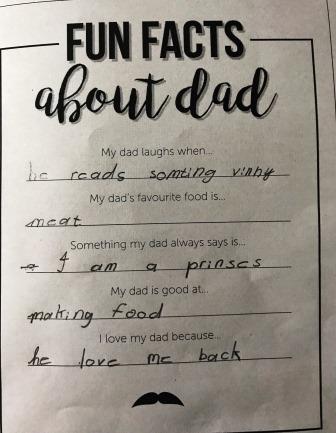 FUN FACTS
about dad
My dad laughs when...
he reads somting vinny
My dad's favourite food is...
meat
Something my dad always says is...
I am a prinses
My dad is good at...
making food
I love my dad because...
he love me back